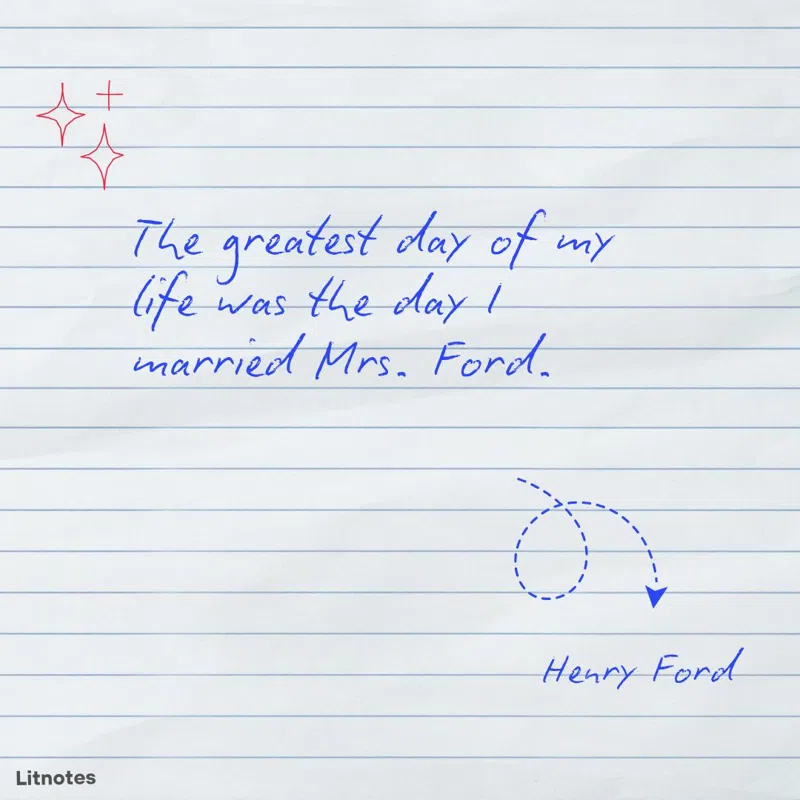 The greatest day of my
life was the day I
married Mrs. Ford.
Henry Ford
Litnotes